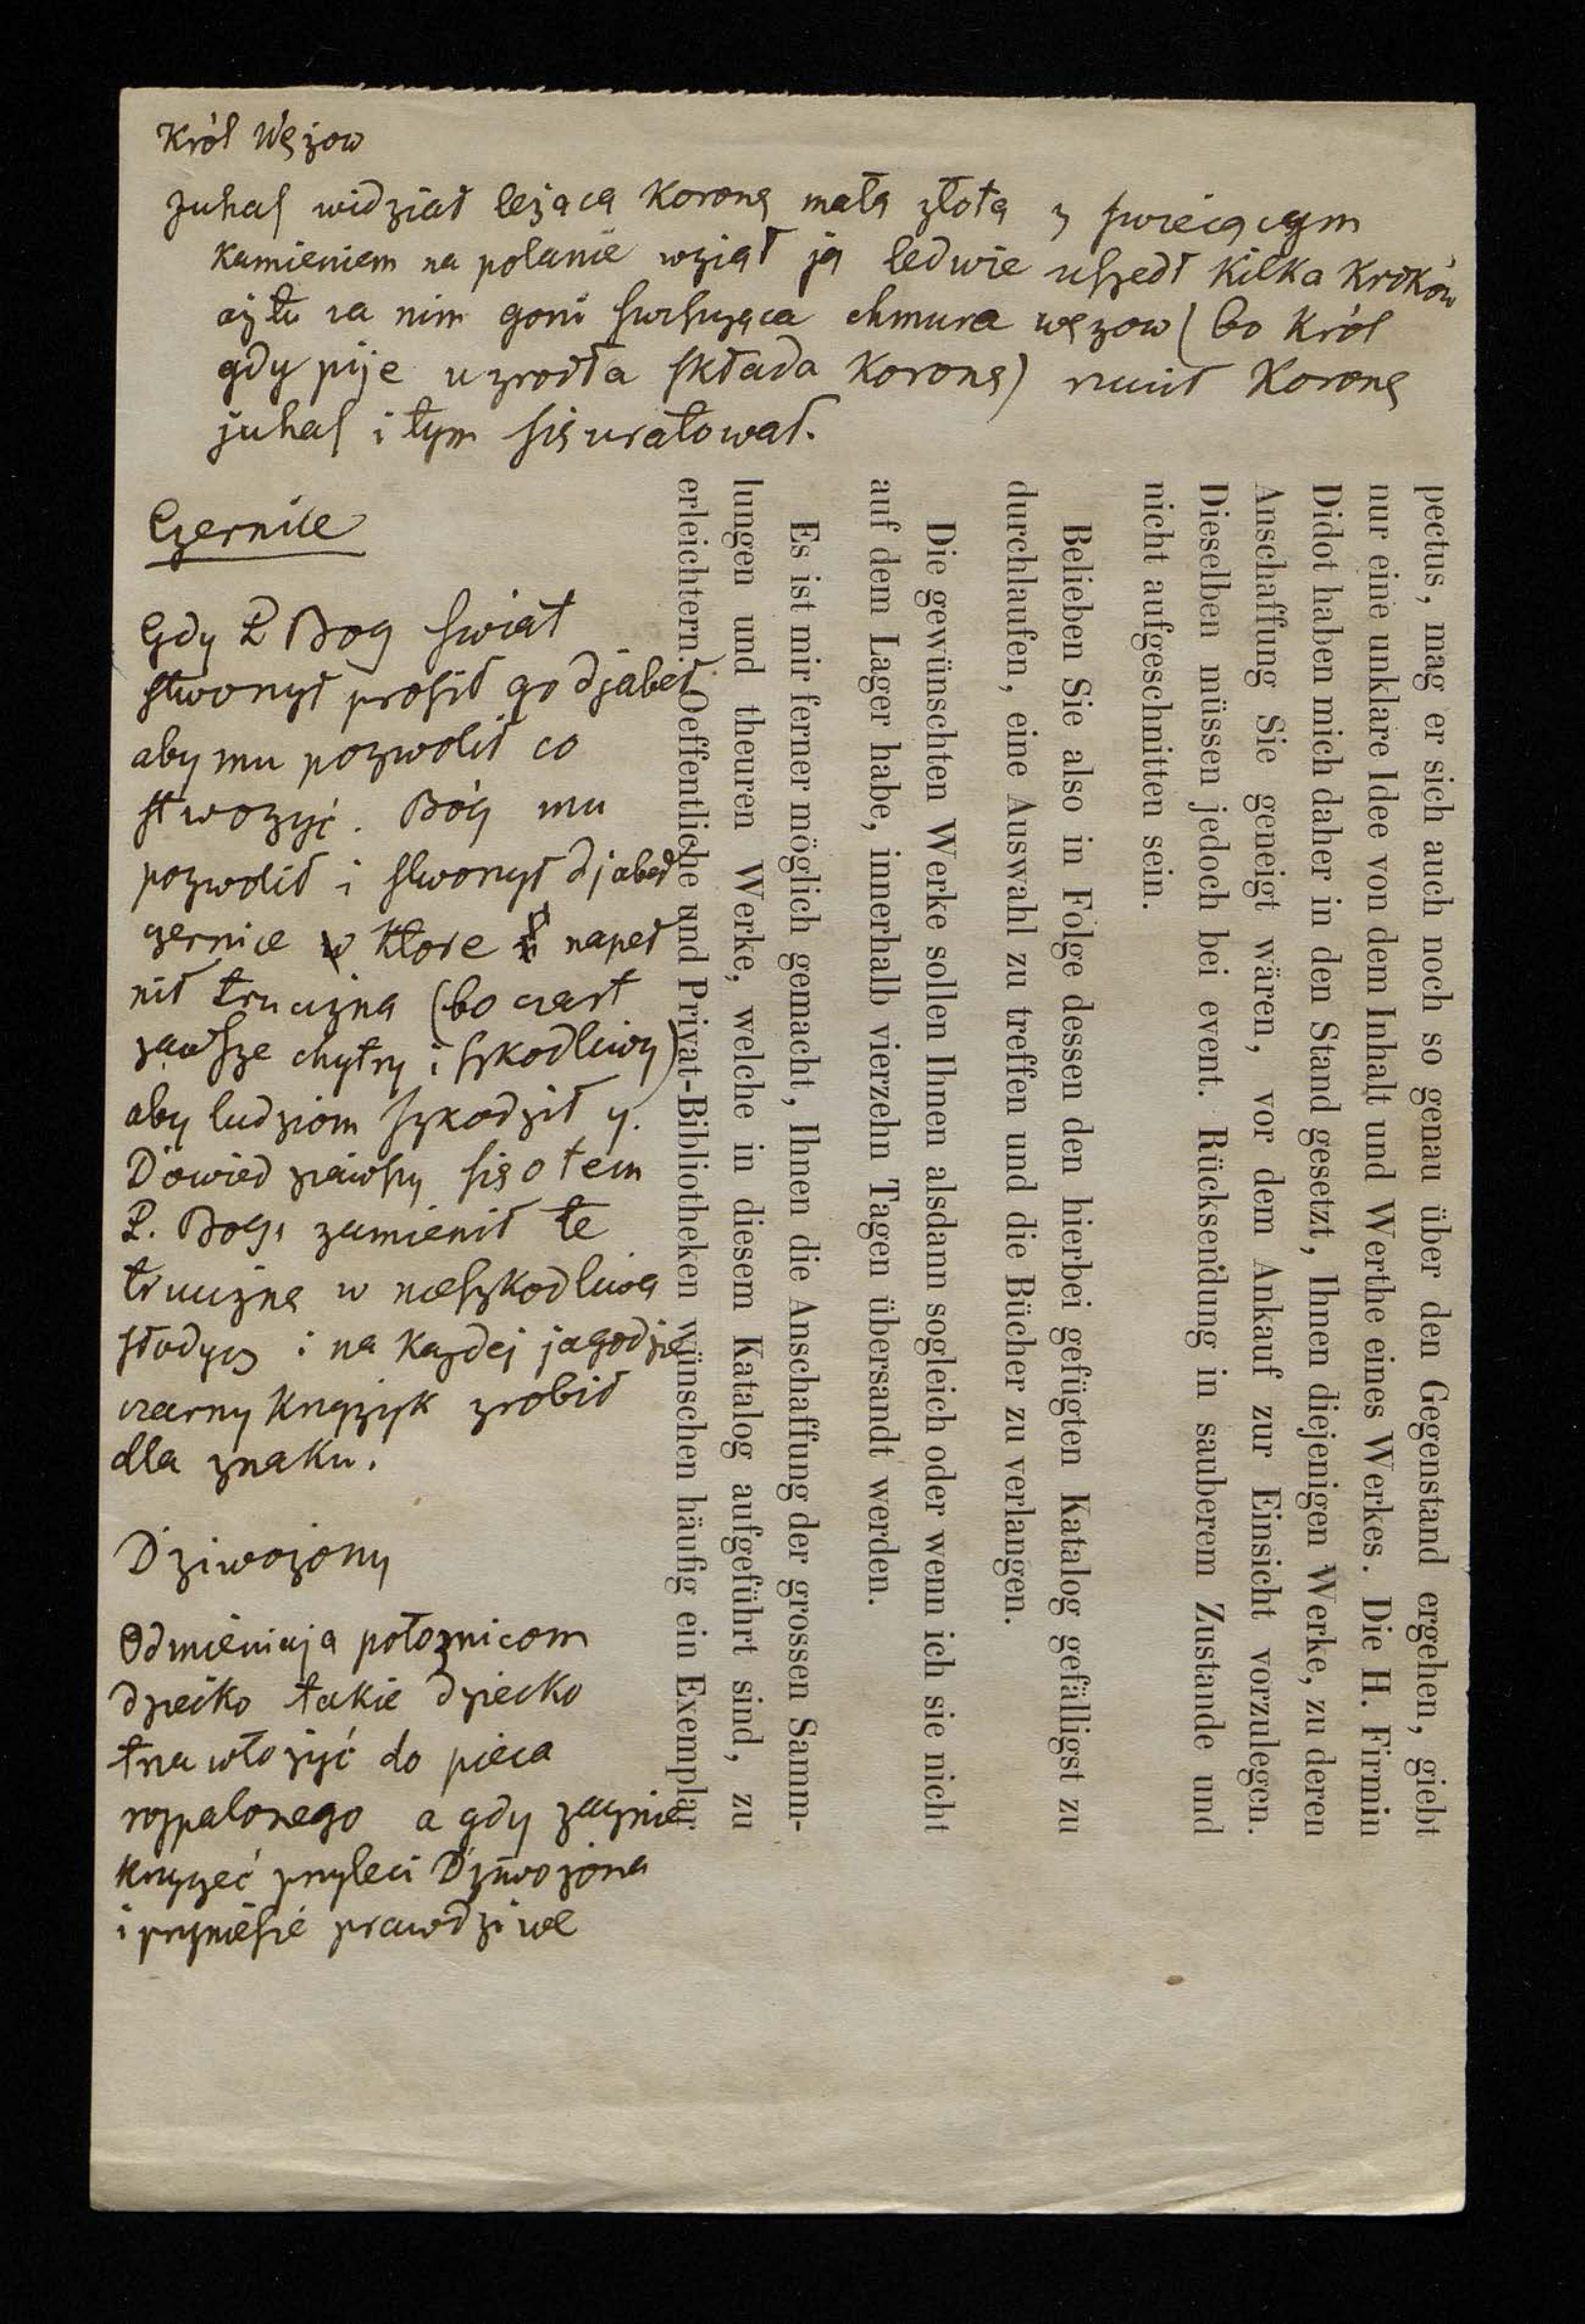 Król Wężow
Juhas widział leżaca Koronę małą złotą z swiecącym
kamieniem na polanie wziął ją ledwie uszedł kilka kroków
aż tu za nim goni świszcząca chmura wężow (bo Król
gdy pije u zrodła składa Koronę) rzucił Koronę
juhas i tym się uratował.
Czernice
Gdy P Bog swiat
stworzył prosił go djabeł
aby mu pozwolił co
stworzyć. Bóg mu
pozwolił i stworzył djabeł
czernice w ktore napeł
nił trucizna (bo czart
zawsze chytry i szkodliwy)
aby ludziom szkodził y.
Dowiedziawszy się o tem
P. Bog, zamienił te
truciznę w nieszkodliwa
słodycz i na każdej jagodzie
czarny krzyżyk zrobił
dla znaku.
Dziwożony
Odmieniaja położnicom
dziecko takie dziecko
trza włożyć do pieca
rozpalonego a gdy zacznie
krzyczeć przyleci Dziwożona
i przyniesie prawdziwe
pectus, mag er sich auch noch so genau über den Gegenstand ergehen, giebt
nur eine unklare Idee von dem Inhalt und Werthe eines Werkes. Die H. Firmin
Didot haben mich daher in den Stand gesetzt, Ihnen diejenigen Werke, zu deren
Anschaffung Sie geneigt wären, vor dem Ankauf zur Einsicht vorzulegen.
Dieselben müssen jedoch bei event. Rücksendung in sauberem Zustande und
nicht aufgeschnitten sein.
Belieben Sie also in Folge dessen den hierbei gefügten Katalog gefälligst zu
durchlaufen, eine Auswahl zu treffen und die Bücher zu verlangen.
Die gewünschten Werke sollen Ihnen alsdann sogleich oder wenn ich sie nicht
auf dem Lager habe, innerhalb vierzehn Tagen übersandt werden.
Es ist mir ferner möglich gemacht, Ihnen die Anschaffung der grossen Samm-
lungen und theuren Werke, welche in diesem Katalog aufgeführt sind, zu
erleichtern. Oeffentliche und Privat-Bibliotheken wünschen häufig ein Exemplar